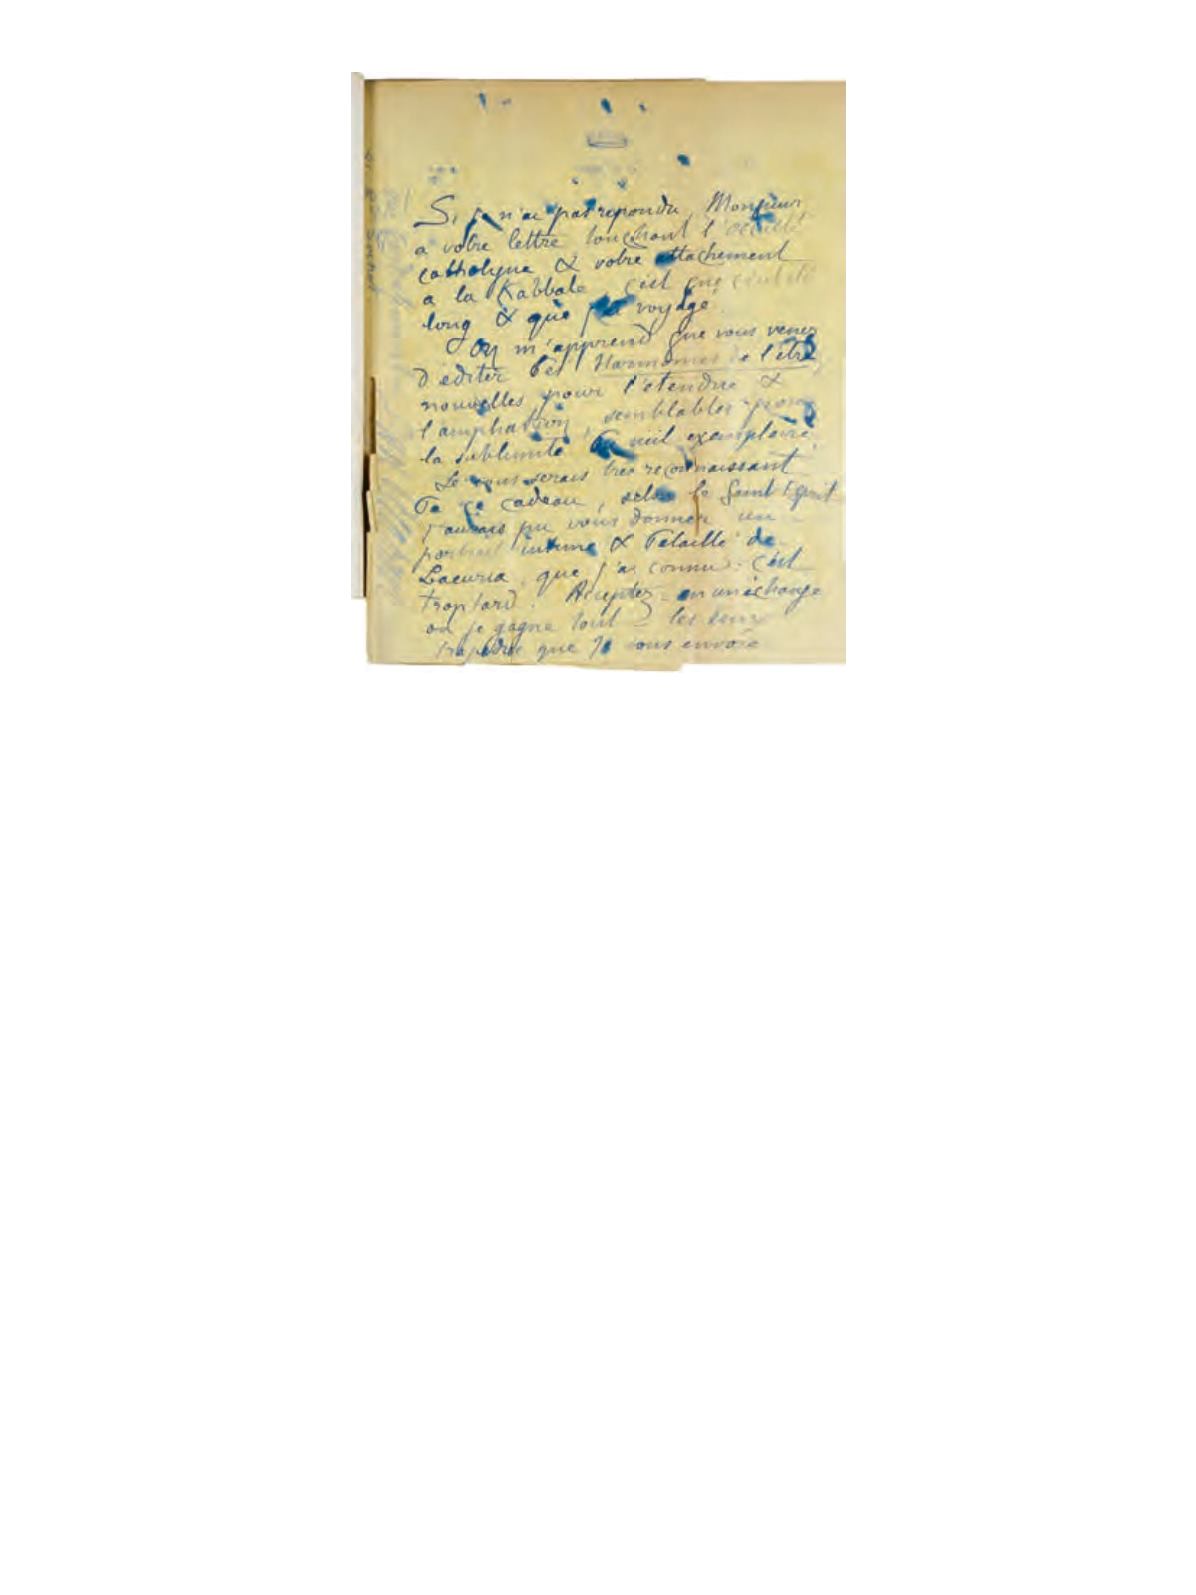 Si je n'ai pas repondu, Monsieur
a votre lettre touchant l'occulte
catholique & votre attachement
a la Kabbale, c'est que c'eut été
long & que j'ai voyagé.
On m'apprend que vous venez
d'editer des Harmonies de l'être,
nouvelles pour l'etendue &
l'amphation, semblables pour
la sublimité du mil exemplaire.
Je vous serais tres reconnaissant
De ce cadeau, selon le Saint Esprit
j'aurais pu vous donner un
portrait intime & detaillé de
Lacuria, que j'ai connu. c'est
trop tard. Acceptez en un échange
ou je gagne tout les deux
tragedies que je vous envoie